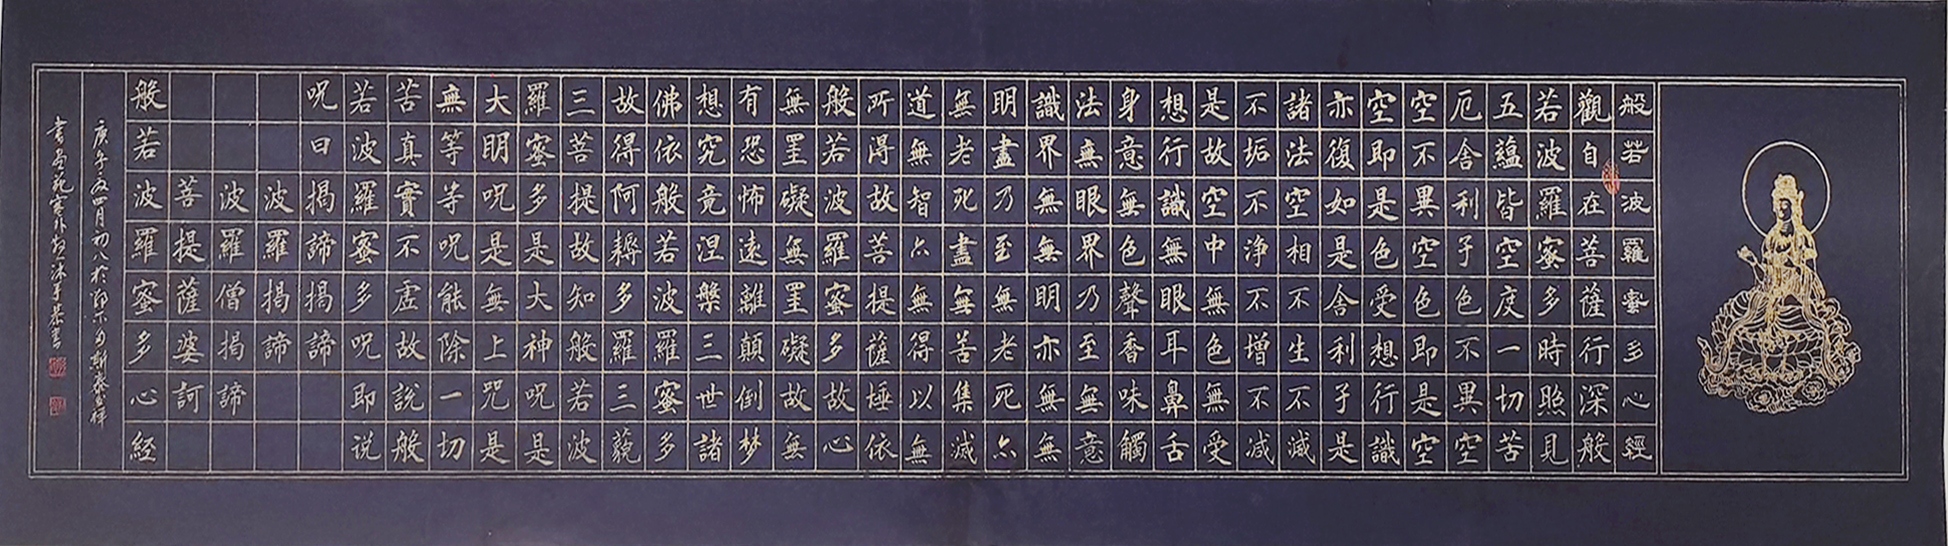 般若波羅蜜多心經
觀自在菩薩行深般
若波羅蜜多時照見
五蘊皆空度一切苦
厄舍利子色不異空
空不異空色即是空
空即是色受想行識
亦復如是舍利子是
諸法空相不生不滅
不垢不浄不增不减
是故空中無色無受
想行識無眼耳鼻舌
身意無色聲香味觸
法無眼界乃至無意
識界無無明亦無無
明盡乃至無老死亦
無老死盡無苦集滅
道無智亦無得以無
所得故菩提薩埵依
般若波羅蜜多故心
無罣礙無罣礙故無
有恐怖遠離顛倒梦
想究竟涅槃三世諸
佛依般若波羅蜜多
故得阿耨多羅三藐
三菩提故知般若波
羅蜜多是大神呪是
大明呪是無上咒是
無等等呪能除一切
苦真實不虛故說般
若波羅蜜多呪即说
呪曰揭諦揭諦
波羅揭諦
波羅僧揭諦
菩提薩婆訶
般若波羅蜜多心経
庚子四月初八於